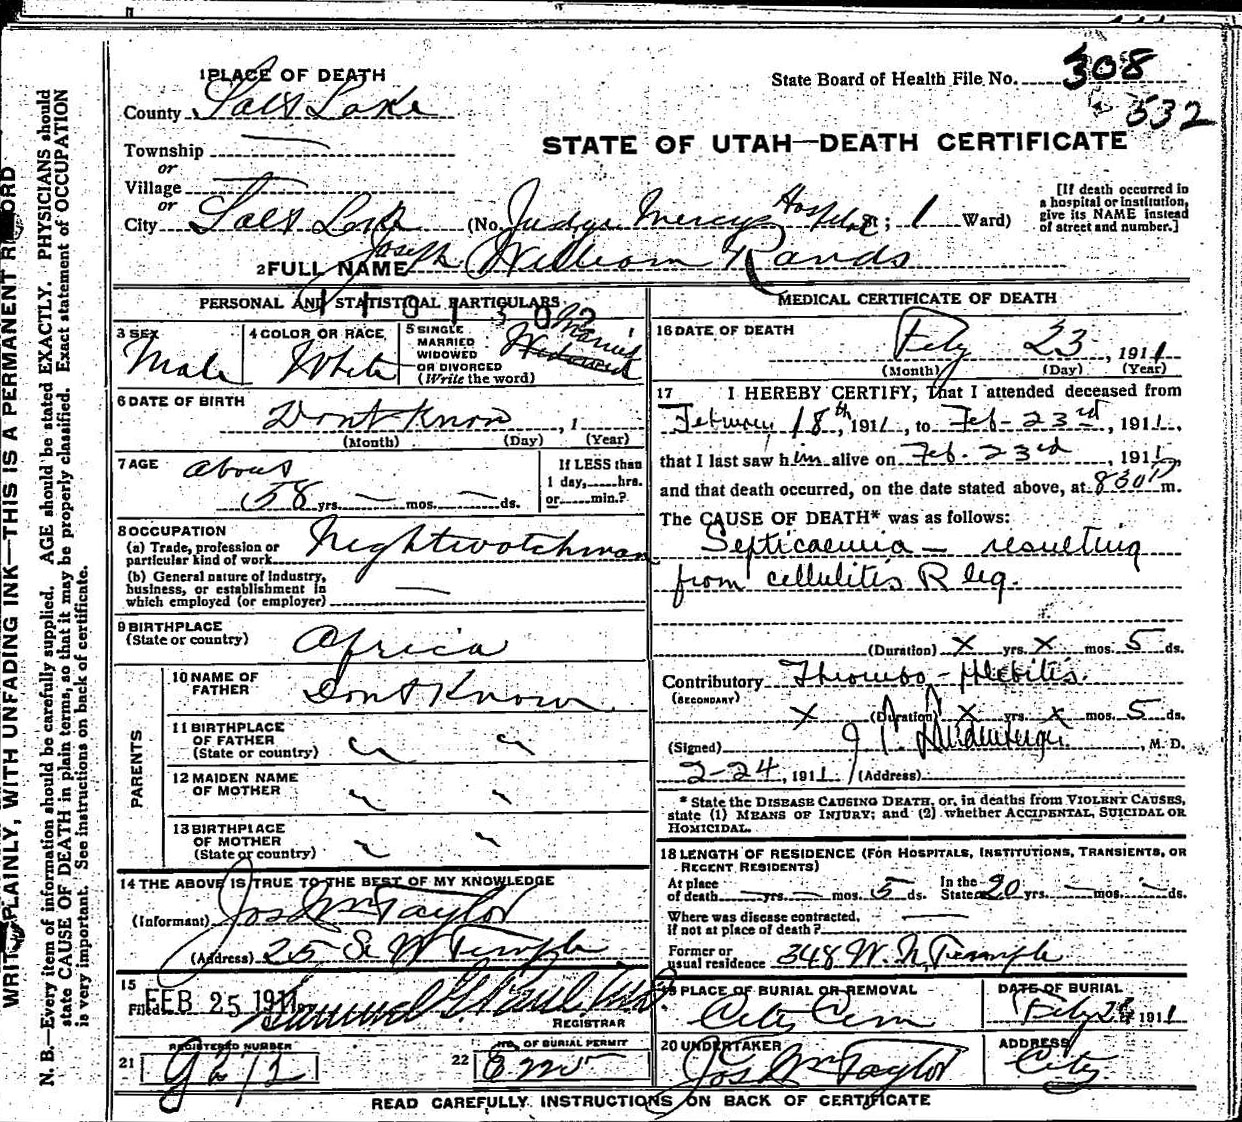 1 PLACE OF DEATH
State Board of Health File No. 308
532
County Salt Lake
STATE OF UTAH—DEATH CERTIFICATE
Township —
or
Village —
or
City Salt Lake (No. Judge Mercy Hospital St; 1 Ward)
[If death occurred in
a hospital or institution,
give its NAME instead
of street and number.]
2 FULL NAME Joseph William Rands
PERSONAL AND STATISTICAL PARTICULARS
1101302
3 SEX
Male
4 COLOR OR RACE
White
5 SINGLE
MARRIED
WIDOWED
OR DIVORCED
(Write the word)
Married
Widowed
6 DATE OF BIRTH
Dont Know , 1
(Month) (Day) (Year)
7 AGE
about
58 yrs. — mos. — ds.
If LESS than
1 day,......hrs.
or......min.?
8 OCCUPATION
(a) Trade, profession or
particular kind of work Nightwatchman
(b) General nature of industry,
business, or establishment in
which employed (or employer) —
9 BIRTHPLACE
(State or country) Africa
PARENTS
10 NAME OF
FATHER Dont Know
11 BIRTHPLACE
OF FATHER
(State or country) " "
12 MAIDEN NAME
OF MOTHER " "
13 BIRTHPLACE
OF MOTHER
(State or country) " "
14 THE ABOVE IS TRUE TO THE BEST OF MY KNOWLEDGE
(Informant) Jos Wm Taylor
(Address) 25 So W Temple
15
Filed FEB 25 1911
REGISTRAR
21 REGISTERED NUMBER
22 NO. OF BURIAL PERMIT
MEDICAL CERTIFICATE OF DEATH
16 DATE OF DEATH
Feby 23, 1911
(Month) (Day) (Year)
17 I HEREBY CERTIFY, That I attended deceased from
February 18th, 1911, to Feb-23rd, 1911,
that I last saw him alive on Feb. 23rd, 1911,
and that death occurred, on the date stated above, at 830P m.
The CAUSE OF DEATH* was as follows:
Septicaemia — resulting
from cellulitis R leg.
(Duration) X yrs. X mos. 5 ds.
Contributory Thrombo-Phlebitis.
(SECONDARY)
X (Duration) X yrs. X mos. 5 ds.
(Signed) , M. D.
2-24, 1911 (Address)
* State the DISEASE CAUSING DEATH, or, in deaths from VIOLENT CAUSES,
state (1) MEANS OF INJURY; and (2) whether ACCIDENTAL, SUICIDAL OR
HOMICIDAL.
18 LENGTH OF RESIDENCE (FOR HOSPITALS, INSTITUTIONS, TRANSIENTS, OR
RECENT RESIDENTS)
At place
of death — yrs. — mos. 5 ds. In the
State 20 yrs. — mos. — ds.
Where was disease contracted,
if not at place of death? —
Former or
usual residence 348 W. N. Temple
19 PLACE OF BURIAL OR REMOVAL
City Cem
DATE OF BURIAL
Feby 1911
20 UNDERTAKER
Jos Wm Taylor
ADDRESS
City
READ CAREFULLY INSTRUCTIONS ON BACK OF CERTIFICATE
WRITE PLAINLY, WITH UNFADING INK—THIS IS A PERMANENT RECORD
N. B.—Every item of information should be carefully supplied. AGE should be stated EXACTLY. PHYSICIANS should
state CAUSE OF DEATH in plain terms, so that it may be properly classified. Exact statement of OCCUPATION
is very important. See instructions on back of certificate.